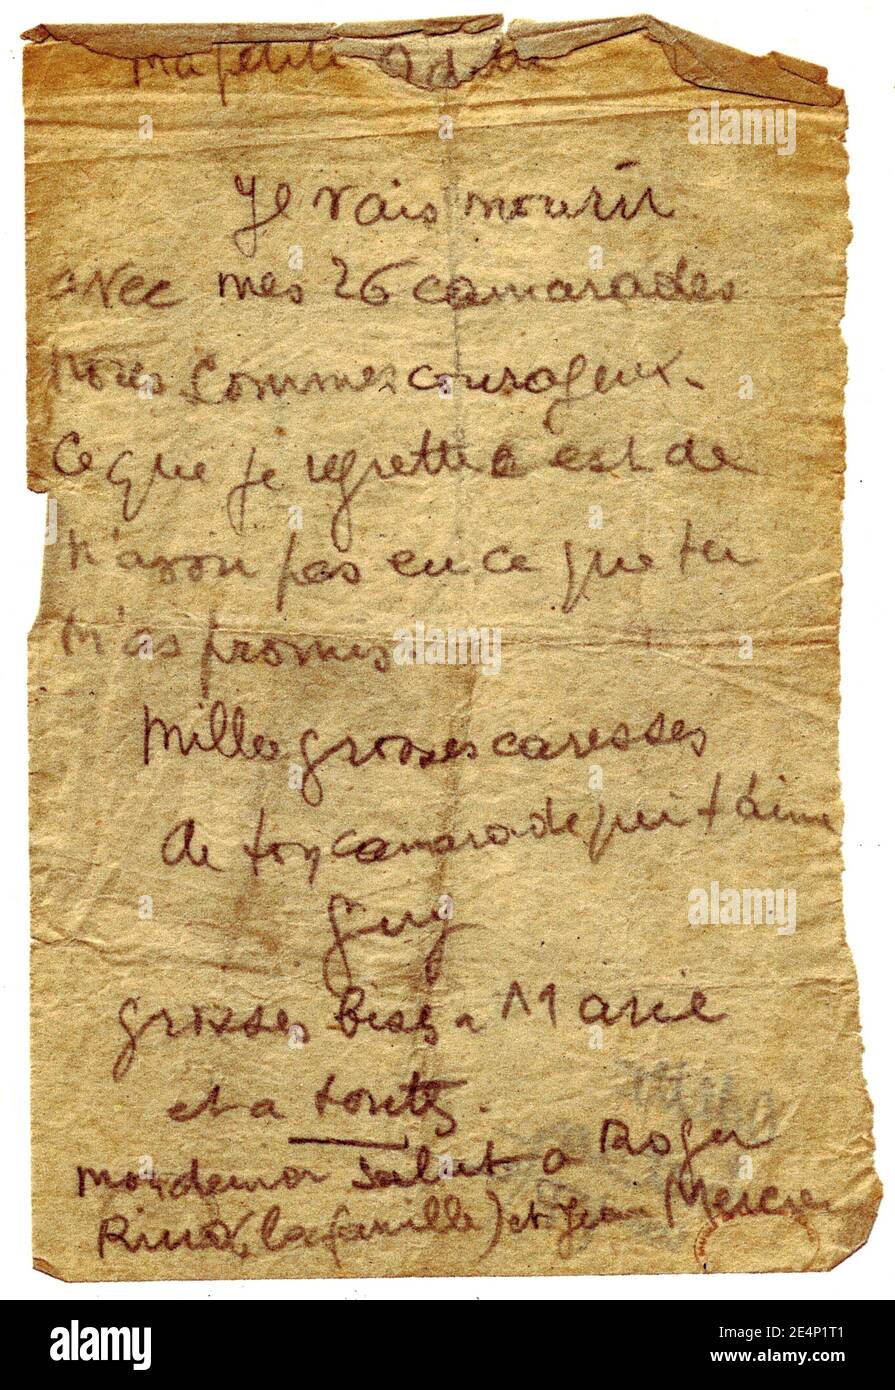 ma petite Odette
Je vais mourir
avec mes 26 camarades
nous sommes courageux.
Ce que je regrette c'est de
n'avoir pas eu ce que tu
m'as promis.
Mille grosses caresses
de ton camarade qui t'aime
Guy
grosses bises a Marie
et a toutes.
mon dernier salut a Roger
(la famille) et Jean
alamy
Image ID: 2E4P1T1
www.alamy.com